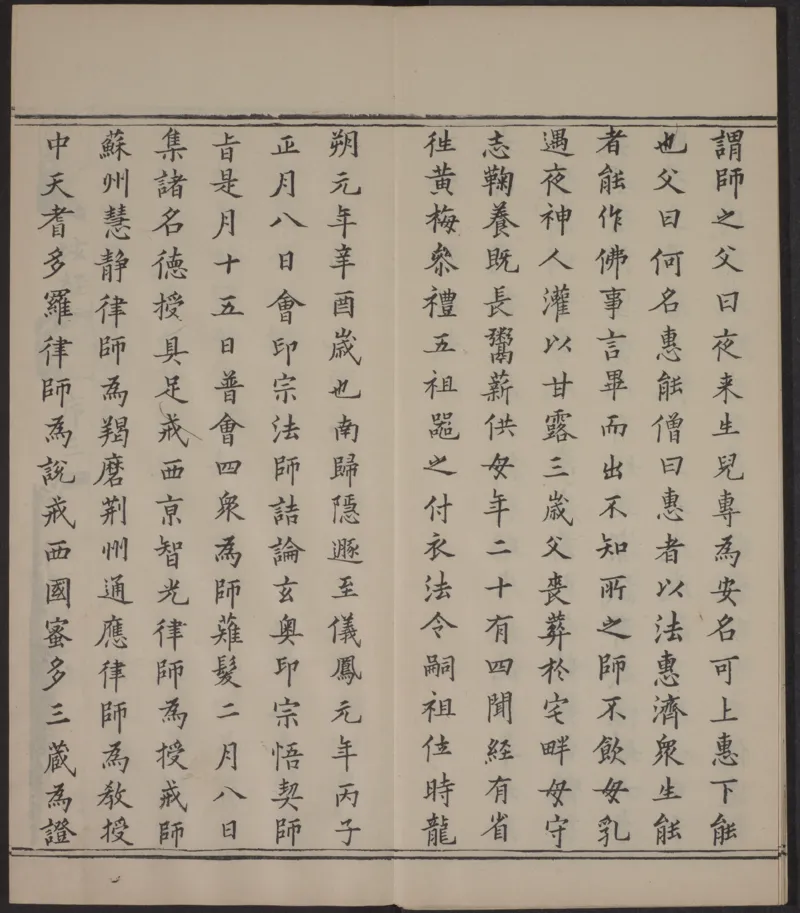 謂師之父曰夜来生兒專為安名可上惠下能
也父曰何名惠能僧曰惠者以法惠濟衆生能
者能作佛事言畢而出不知所之師不飲母乳
遇夜神人灌以甘露三歲父喪葬於宅畔母守
志鞠養既長鬻薪供母年二十有四聞經有省
徃黄梅叅禮五祖噐之付衣法令嗣祖位時龍
朔元年辛酉歲也南歸隱遯至儀鳳元年丙子
正月八日會印宗法師詰論玄奥印宗悟契師
旨是月十五日普會四衆為師薙髮二月八日
集諸名德授具足戒西京智光律師為授戒師
蘇州慧静律師為羯磨荆州通應律師為教授
中天耆多羅律師為說戒西國蜜多三藏為證